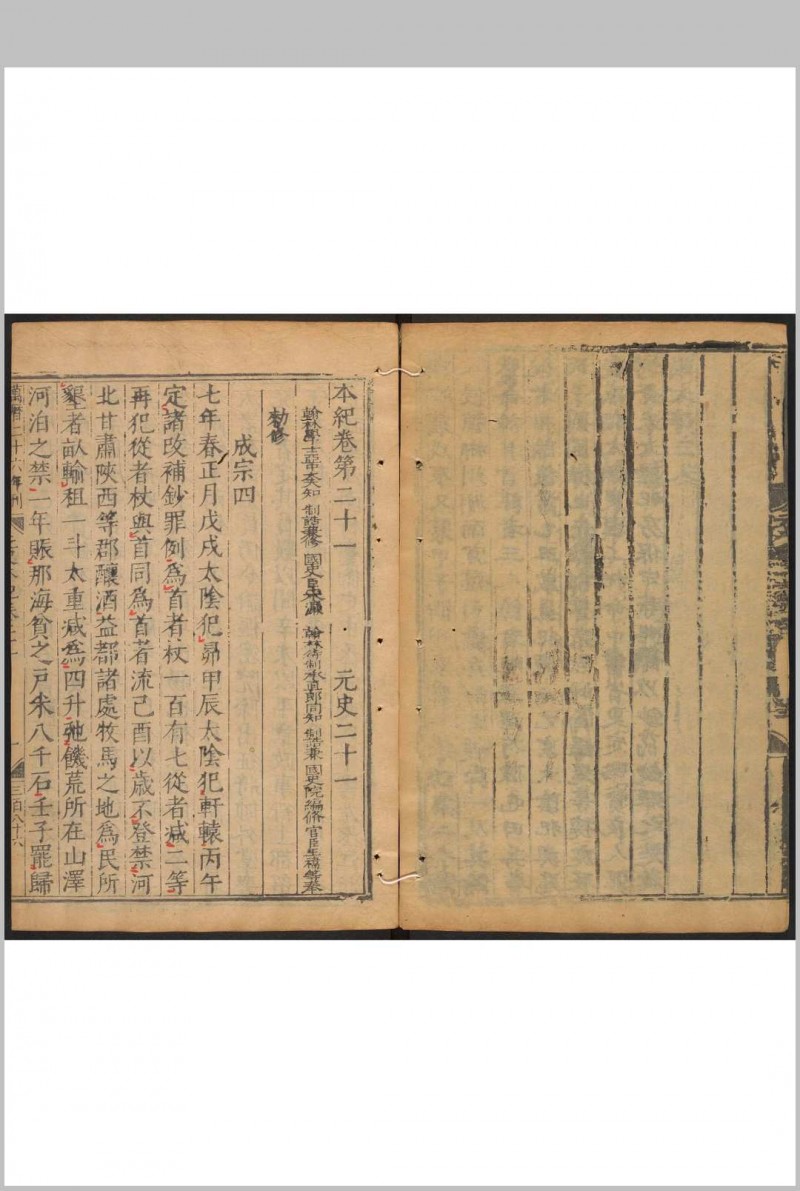 本紀卷第二十一 元史二十一
翰林學士亞中大夫知 制誥兼修 國史臣宋濂 翰林待制承直郎同知 制誥兼 國史院編修官臣王禕等奉
勑修
成宗四
七年春正月戊戌太陰犯昴甲辰太陰犯軒轅丙午
定諸改補鈔罪例為首者杖一百有七從者減二等
再犯從者杖與首同為首者流己酉以歲不登禁河
北甘肅陝西等郡釀酒益都諸處牧馬之地為民所
墾者畝輸租一斗太重減為四升弛饑荒所在山澤
河泊之禁一年賑那海貧乏戶米八千石壬子罷歸
萬曆二十六年刊
三百八十六